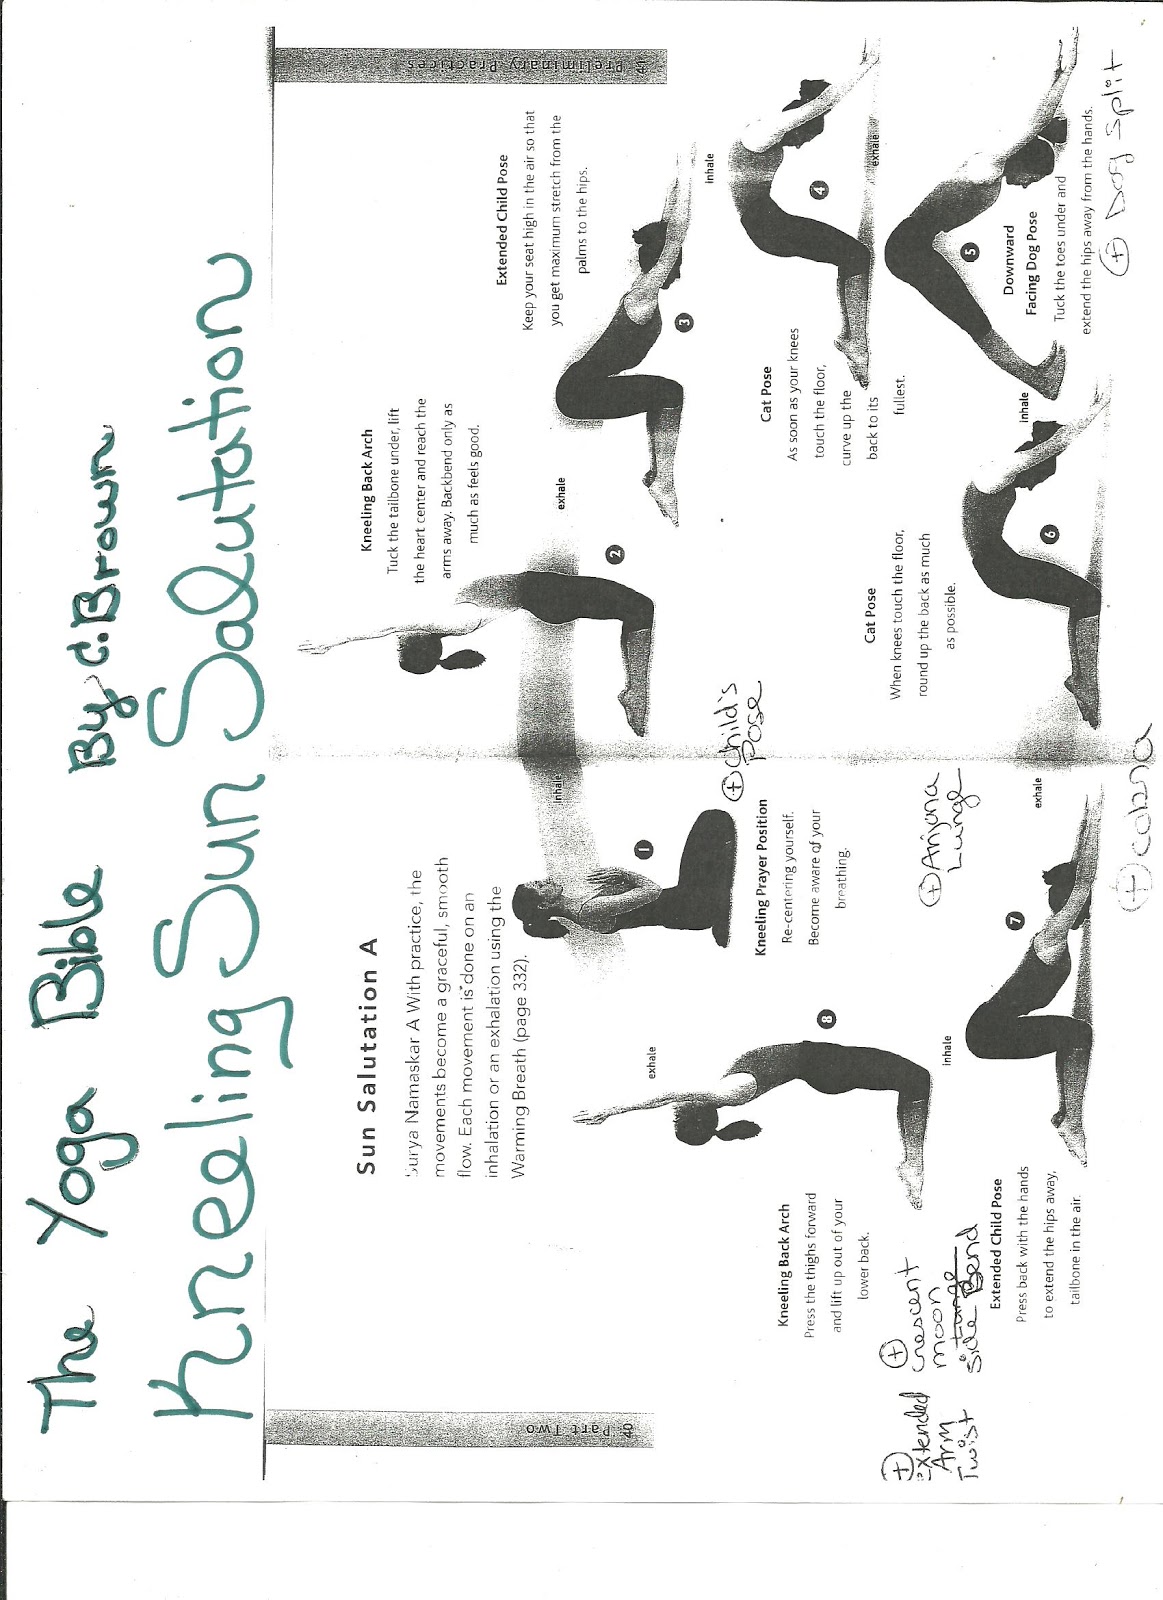 The Yoga Bible By C. Brown
Kneeling Sun Salutation
Sun Salutation A
Surya Namaskar A With practice, the
movements become a graceful, smooth
flow. Each movement is done on an
inhalation or an exhalation using the
Warming Breath (page 332).
inhale
1
Kneeling Prayer Position
Re-centering yourself.
Become aware of your
breathing.
+ Child's
Pose
Kneeling Back Arch
Tuck the tailbone under, lift
the heart center and reach the
arms away. Backbend only as
much as feels good.
2
exhale
Extended Child Pose
Keep your seat high in the air so that
you get maximum stretch from the
palms to the hips.
3
inhale
Cat Pose
As soon as your knees
touch the floor,
curve up the
back to its
fullest.
4
exhale
5
Downward
Facing Dog Pose
Tuck the toes under and
extend the hips away from the hands.
+ Dog Split
inhale
Cat Pose
When knees touch the floor,
round up the back as much
as possible.
6
exhale
+ Cobra
+ Anjana
Lunge
7
Extended Child Pose
Press back with the hands
to extend the hips away,
tailbone in the air.
inhale
8
Kneeling Back Arch
Press the thighs forward
and lift up out of your
lower back.
exhale
+
Crescent
moon
side Bend
+
Extended
Arm
Twist
40 Part Two
41 Preliminary Practices